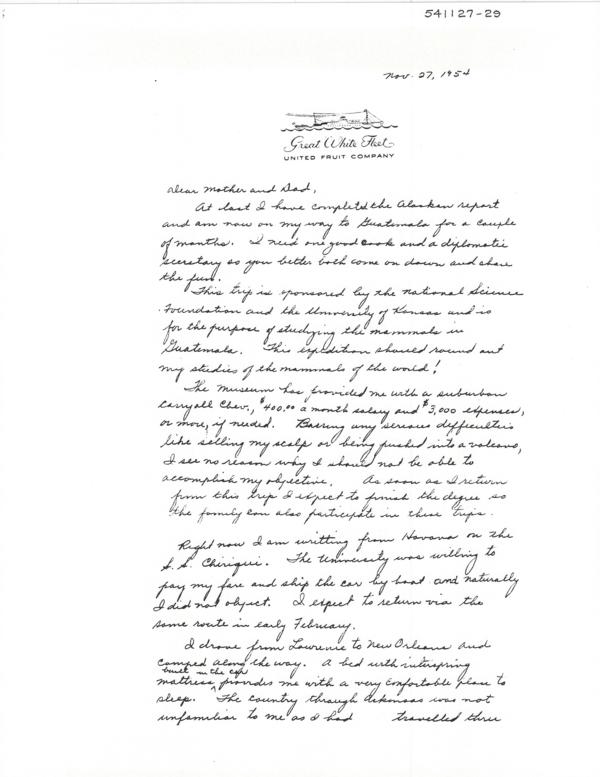 541127-29
Nov. 27, 1954
Great White Fleet
UNITED FRUIT COMPANY
Dear Mother and Dad,
At last I have completed the Alaskan report
and am now on my way to Guatemala for a couple
of months. I need one good cook and a diplomatic
secretary so you better both come on down and share
the fun.
This trip is sponsored by the National Science
Foundation and the University of Kansas and is
for the purpose of studying the mammals in
Guatemala. This expedition should round out
my studies of the mammals of the world!
The museum has provided me with a suburban
carryall Chev., $400.00 a month salary and $3,000 expenses,
or more, if needed. Barring any serious difficulties
like selling my scalp or being pushed into a volcano,
I see no reason why I should not be able to
accomplish my objective. As soon as I return
from this trip I expect to finish the degree so
the family can also participate in these trips.
Right now I am writting from Havana on the
S.S. Chiriqui. The University was willing to
pay my fare and ship the car by boat and naturally
I did not object. I expect to return via the
same route in early February.
I drove from Lawrence to New Orleans and
camped along the way. A bed with interspring
built in the car
mattress provides me with a very comfortable place to
sleep. The country through Arkansas was not
unfamiliar to me as I had travelled three